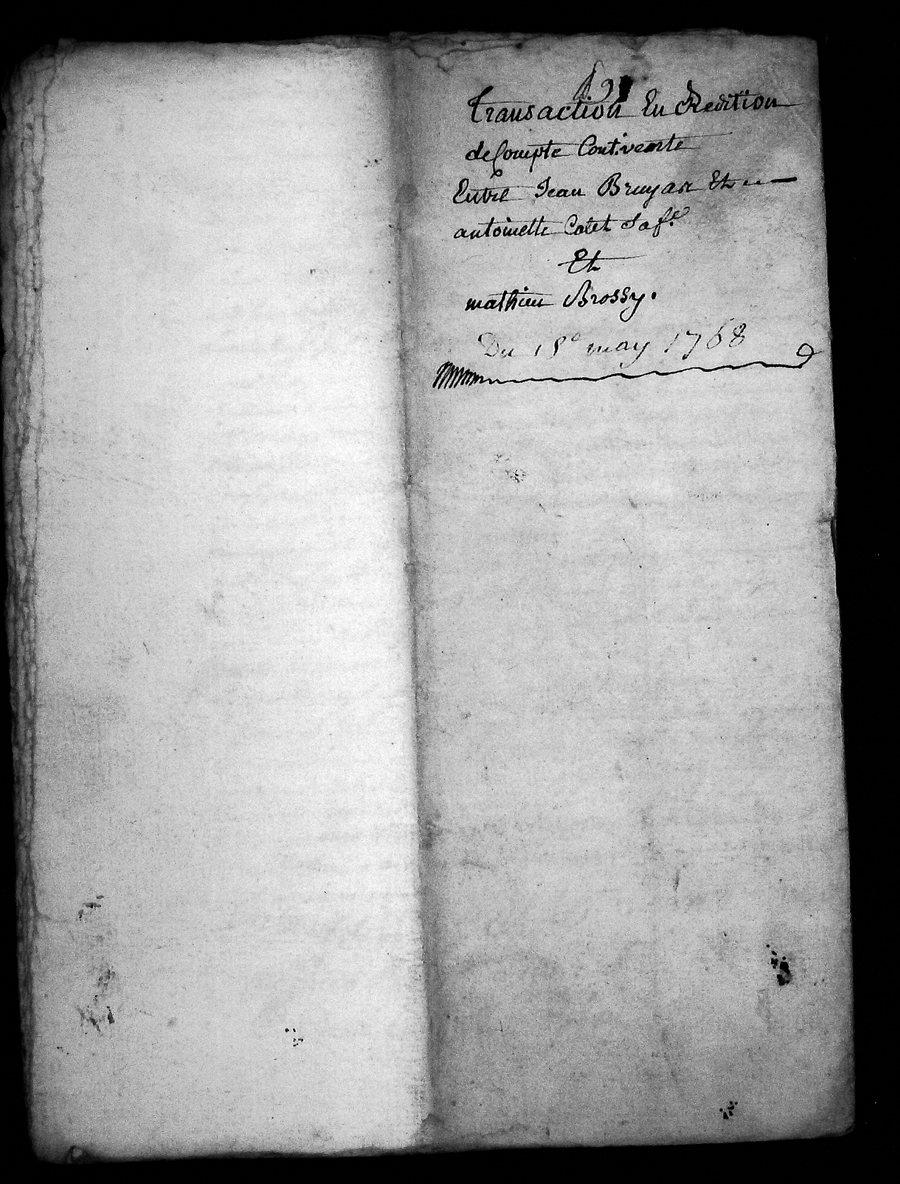 Transaction En Redition
de Compte Cont. vente
Entre Jean Bruyas Et
antoinette Colet Sa fe
Et
mathieu Brossy.
Du 18e may 1768